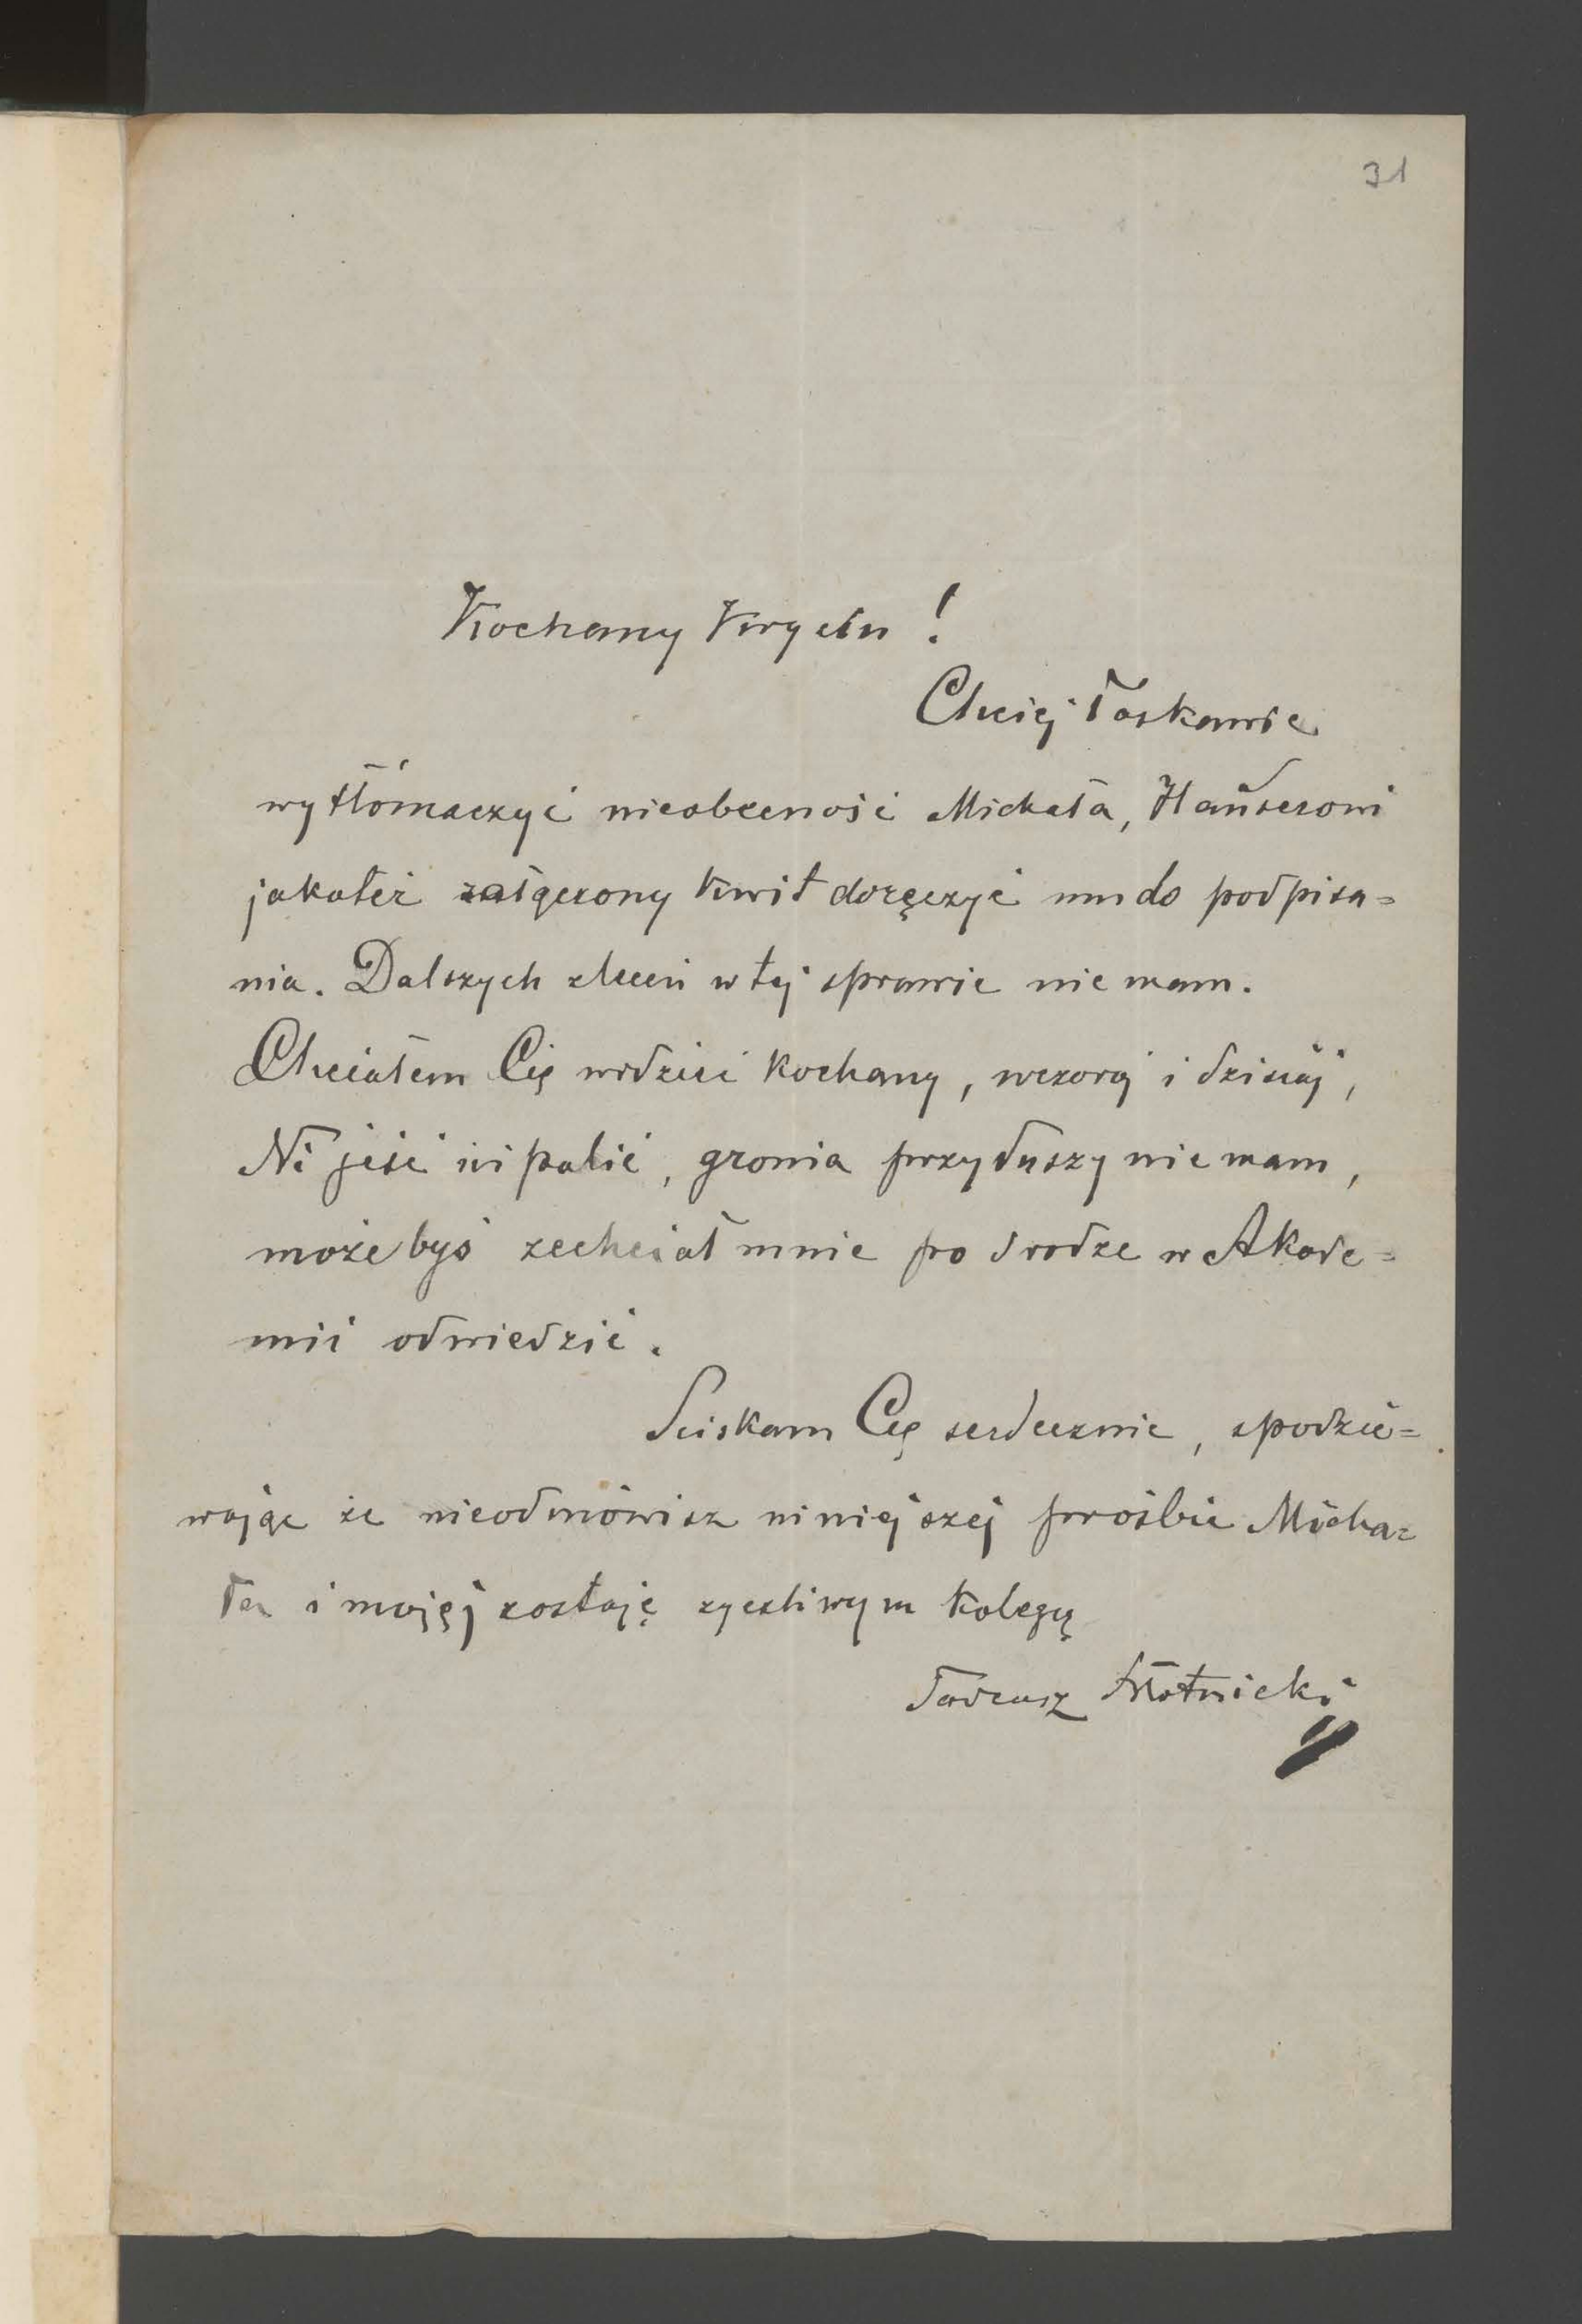 31
Kochany Kryciu!
Chciej łaskawie
wytłómaczyć nieobecność Michała, Hauserowi
jakoteż załączony kwit doręczyć mu do podpisa=
nia. Dalszych zleceń w tej sprawie nie mam.
Chciałem Cię widzieć kochany, wczoraj i dzisiaj,
Ni jeść ni palić, gronia przy duszy nie mam,
może byś zechciał mnie po drodze w Akade=
mii odwiedzić.
Sciskam Cię serdecznie, spodzie=
wając że nieodmówisz niniejszej prośbie Micha=
ła i mojej zostaję życzliwym kolegą
Tadeusz Błotnicki